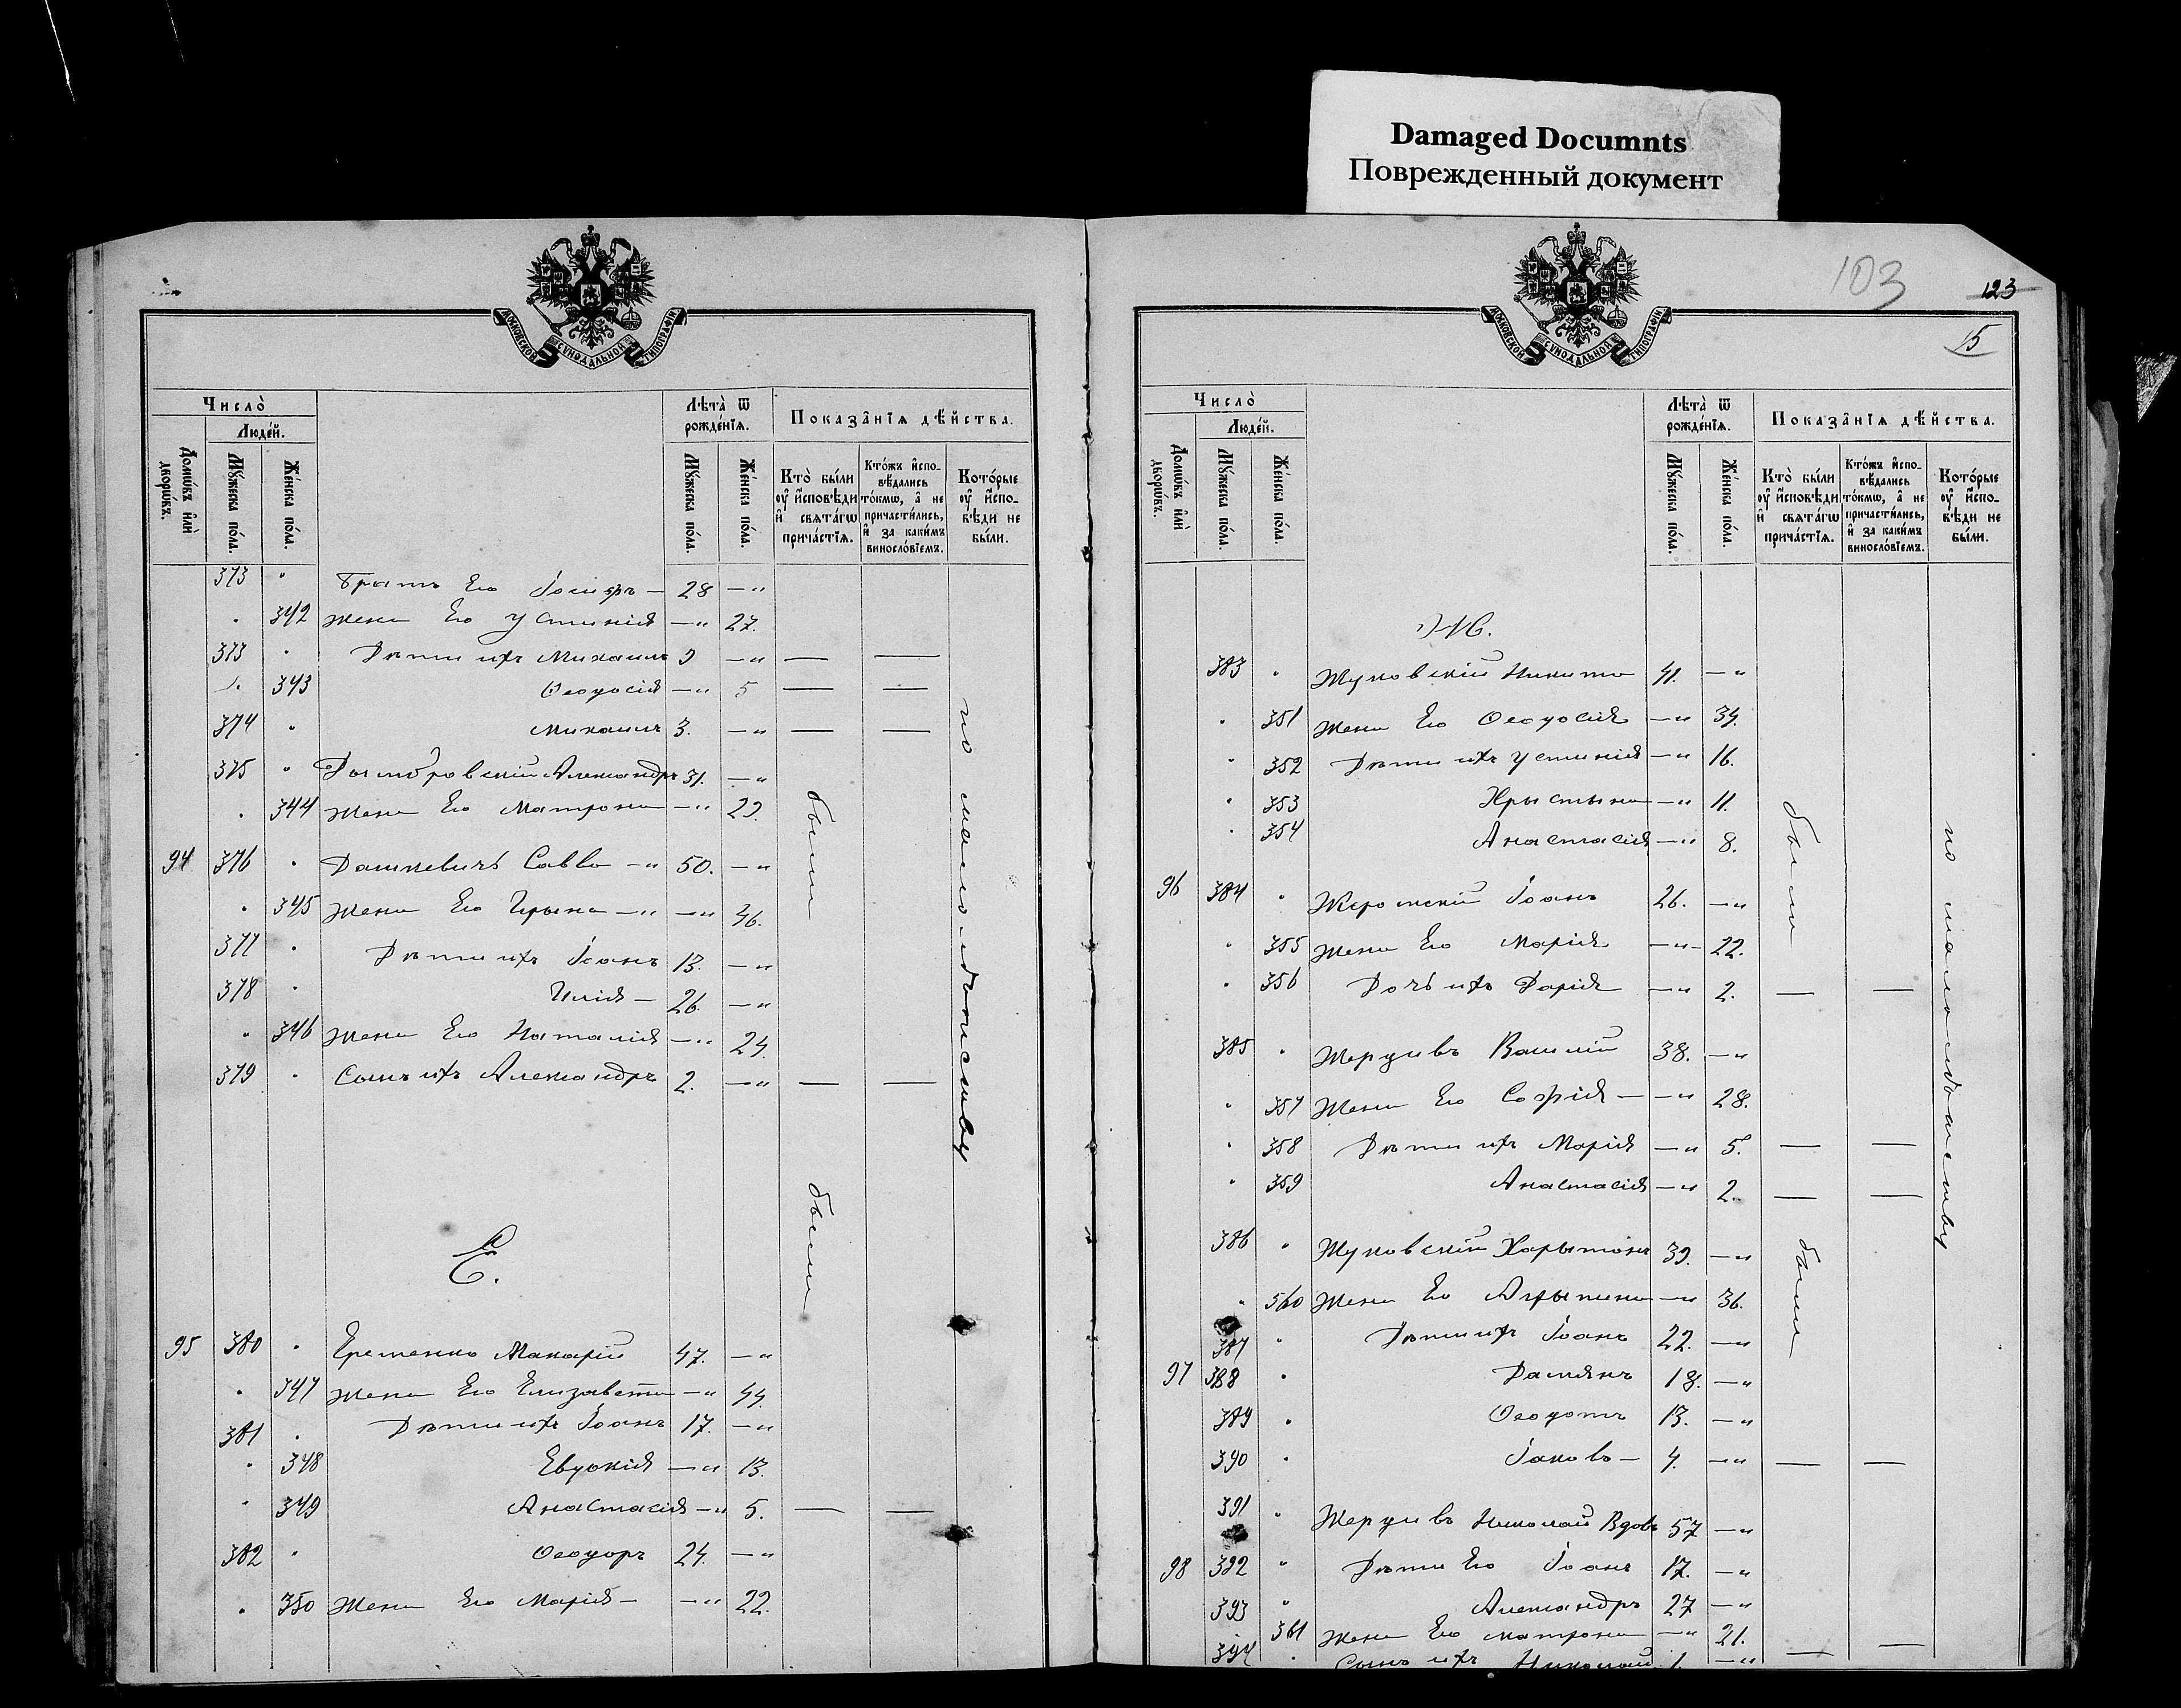 Damaged Documnts
Поврежденный документ
МОСКОВСКОЙ СѴНОДАЛЬНОЙ ТИПОГРАФІИ
Число̀
Люде́й.
Домѡ́въ и҆лѝ дворѡ́въ.
Мꙋ́жеска по́ла.
Же́нска по́ла.
Лѣ́та ѿ рожде́нїѧ.
Мꙋ́жеска по́ла.
Же́нска по́ла.
Показа̑нїѧ дѣ́йства.
Кто̀ бы́ли ᲂу҆ и҆сповѣ́ди и҆ свѧта́гѡ прича́стїѧ.
Кто́жъ и҆сповѣ́дались то́кмѡ, а҆ не причасти́лись, и҆ за каки́мъ виносло́вїемъ.
Кото́рые ᲂу҆ и҆сповѣ́ди не бы́ли.
373 " Братъ Его Іосифъ — 28 — "
" 342 Жена Его Устинія — " 27.
373 " Дѣти ихъ Михаилъ 9 — " — —
" 343 Ѳеодосія — " 5 — —
374 " Михаилъ 3. — " — —
375 " Домбровскій Александръ 31. — "
" 344 Жена Его Матрона — " 29.
94 376 " Дашкевичъ Савва — " 50. — "
" 345 Жена Его Ирына — " — " 46.
377 " Дѣти ихъ Іоанъ 13. — "
378 " Илія — 26. — "
" 346 Жена Его Наталія — " 24.
379 " Сынъ ихъ Александръ 2. — " — —
были
по малолѣтству
Е.
были
95 380 " Еременко Макарій 47. — "
" 347 Жена Его Елизавета — " 44.
381 " Дѣти ихъ Іоанъ 17. — "
" 348 Евдокія — " 13.
" 349 Анастасія — " 5. — —
382 " Ѳеодоръ 24. — "
" 350 Жена Его Марія — — " 22.
103
123
15
МОСКОВСКОЙ СѴНОДАЛЬНОЙ ТИПОГРАФІИ
Число̀
Люде́й.
Домѡ́въ и҆лѝ дворѡ́въ.
Мꙋ́жеска по́ла.
Же́нска по́ла.
Лѣ́та ѿ рожде́нїѧ.
Мꙋ́жеска по́ла.
Же́нска по́ла.
Показа̑нїѧ дѣ́йства.
Кто̀ бы́ли ᲂу҆ и҆сповѣ́ди и҆ свѧта́гѡ прича́стїѧ.
Кто́жъ и҆сповѣ́дались то́кмѡ, а҆ не причасти́лись, и҆ за каки́мъ виносло́вїемъ.
Кото́рые ᲂу҆ и҆сповѣ́ди не бы́ли.
Ж.
383 " Жуковскій Никита 41. — "
" 351 Жена Его Ѳеодосія — " 34.
" 352 Дѣти ихъ Устинія — " 16.
" 353 Хрыстына — " 11.
" 354 Анастасія — " 8.
96 384 " Жеромскій Іоанъ 26. — "
" 355 Жена Его Марія — " — 22.
" 356 Дочь ихъ Дарія — " 2. — —
385 " Жердивъ Василій 38. — "
" 357 Жена Его Софія — — " 28.
" 358 Дѣти ихъ Марія — " 5. — —
" 359 Анастасія — " 2. — —
были
по малолѣтству
386 " Жуковскій Харытонъ 39. — "
" 560 Жена Его Агрыпина — " 36.
387 " Дѣти ихъ Іоанъ 22. — "
97 388 " Даміянъ 18. — "
389 " Ѳеодотъ 13. — "
390 " Іаковъ — 4. — " — —
были
391 " Жердивъ Николай Вдовъ 57 — "
98 392 " Дѣти Его Іоанъ 17. — "
393 " Александръ 27 — "
" 361 Жена Его Матрона — " 21.
394 " Сынъ ихъ Николай 1. — " — —